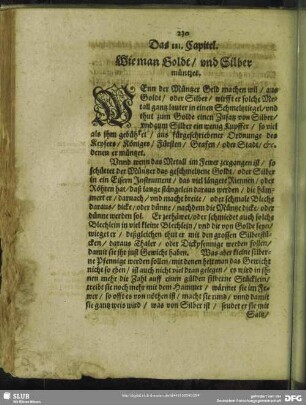 230
Das III. Capitel.
Wie man Goldt / und Silber
müntzet.
WEnn der Müntzer Geld machen wil / aus
Goldt / oder Silber / wirfft er solche Me-
tall gantz lauter in einen Schmeltztiegel / und
thut zum Golde einen Zusatz von Silber
/ und zum Silber ein wenig Kupffer / so viel
als ihm gebühret / aus fürgeschriebener Ordnunge des
Keysers / Königes / Fürsten / Grafen / oder Stadt / &c.
denen er müntzet.
Unnd wenn das Metall im Fewer zergangen ist / so
schüttet der Müntzer das geschmoltzene Goldt / oder Silber
in ein Eisern Instrument / das viel länger Riemen / oder
Röhren hat / daß lange stänglein daraus werden / die häm-
mert er / darnach / und macht breite / oder schmale Blechs
daraus / dicke / oder dünne / nachdem die Müntze dicke / oder
dünne werden sol. Er zerhawet / oder schmiedet auch solche
Blechlein in viel kleine Blechlein / und die von Golde seyn /
wieget er / deßgleichen thut er mit den grossen Silberstü-
cken / daraus Thaler / oder Dickpfennige werden sollen /
damit sie ihr just Gewicht haben. Was aber kleine silber-
ne Pfennige werden sollen / mit denen helt man das Gewicht
nicht so eben / ist auch nicht viel dran gelegen / es wird in ih-
nen mehr die Zahl auff einen gülden silberne Stücklein /
treibt sie noch mehr mit dem Hammer / wärmet sie im Fe-
wer / so offt es von nöthen ist / macht sie rund / unnd damit
sie gantz weis wird / was von Silber ist / seudet er sie mit
Saltz /
SLUB
DFG